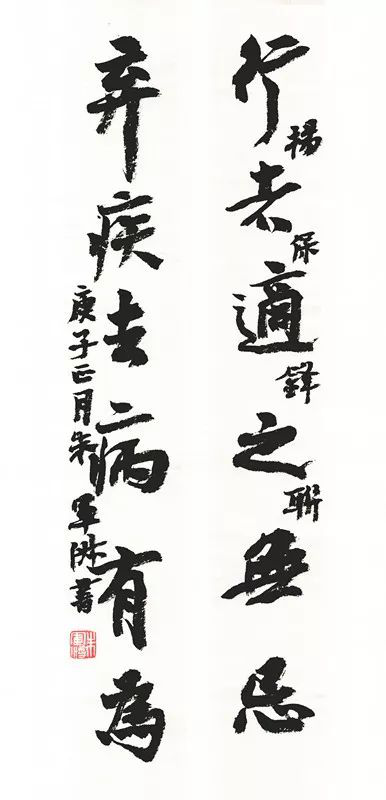 行者適之無忌
楊保鋒聯
弃疾去病有為
庚子正月朱軍書